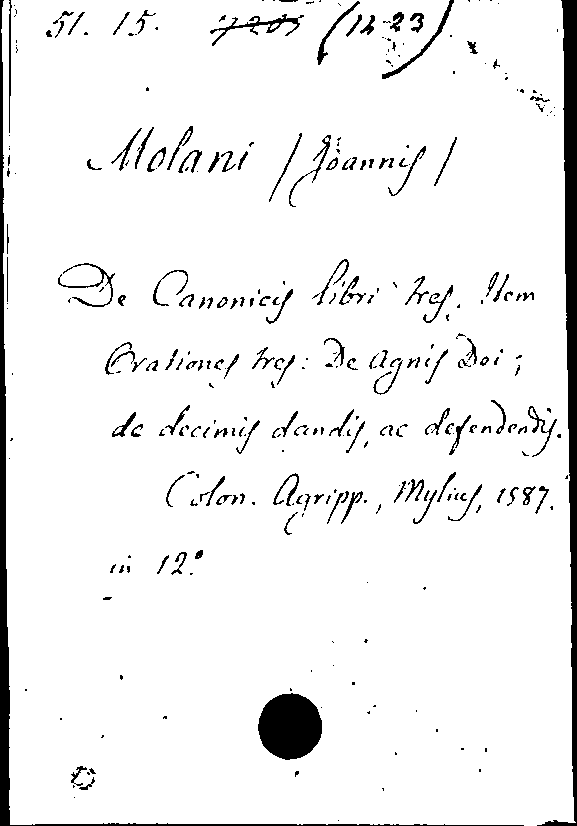 51. 15. 7205 (1423)
Molani /Joannis/
De Canonicis libri tres. Item
Orationes tres: De Agnis Dei;
de decimis dandis, ac defendendis.
Colon. Agripp., Mylius, 1587.
in 12º